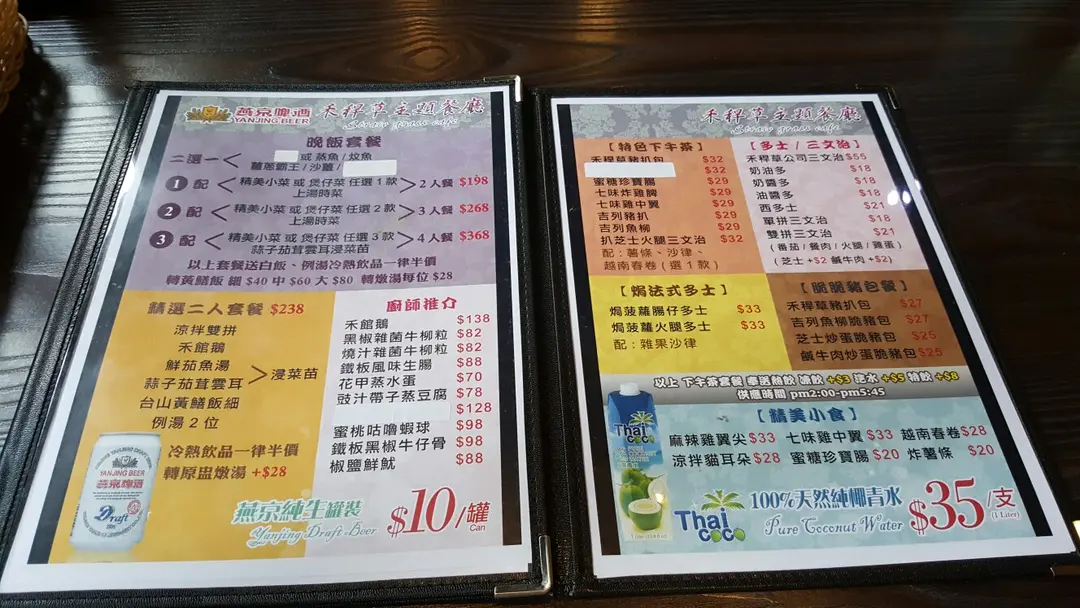 燕京啤酒
YANJING BEER
禾稈草主題餐廳
Straw grass cafe
晚飯套餐
二選一 < 或 蒸魚 / 炆魚
薑蔥霸王 / 沙薑 /
1 配 < 精美小菜 或 煲仔菜 任選 1 款 > 2 人餐 $198
上湯時菜
2 配 < 精美小菜 或 煲仔菜 任選 2 款 > 3 人餐 $268
上湯時菜
3 配 < 精美小菜 或 煲仔菜 任選 3 款 > 4 人餐 $368
蒜子茄茸雲耳浸菜苗
以上套餐送白飯、例湯冷熱飲品一律半價
轉黃鱔飯 細 $40 中 $60 大 $80 轉燉湯每位 $28
精選二人套餐 $238
涼拌雙拼
禾館鵝
鮮茄魚湯
蒜子茄茸雲耳 > 浸菜苗
台山黃鱔飯細
例湯 2 位
冷熱飲品一律半價
轉原盅燉湯 +$28
廚師推介
禾館鵝 $138
黑椒雜菌牛柳粒 $82
燒汁雜菌牛柳粒 $82
鐵板風味生腸 $88
花甲蒸水蛋 $70
豉汁帶子蒸豆腐 $78
$128
蜜桃咕嚕蝦球 $98
鐵板黑椒牛仔骨 $98
椒鹽鮮魷 $88
YANJING BEER
燕京啤酒
Draft
燕京純生罐裝
Yanjing Draft Beer
$10/罐
Can
禾稈草主題餐廳
Straw grass cafe
[ 特色下午茶 ]
禾稈草豬扒包 $32
$32
蜜糖珍寶腸 $29
七味炸雞髀 $29
七味雞中翼 $29
吉列豬扒 $29
吉列魚柳 $29
扒芝士火腿三文治 $32
配：薯條、沙律、
越南春卷 ( 選 1 款 )
[ 多士 / 三文治 ]
禾稈草公司三文治 $55
奶油多 $18
奶醬多 $18
油醬多 $18
西多士 $21
單拼三文治 $18
雙拼三文治 $21
( 番茄 / 餐肉 / 火腿 / 雞蛋 )
( 芝士 +$2 鹹牛肉 +$2)
[ 焗法式多士 ]
焗菠蘿腸仔多士 $33
焗菠蘿火腿多士 $33
配：雜果沙律
[ 脆脆豬包餐 ]
禾稈草豬扒包 $27
吉列魚柳脆豬包 $27
芝士炒蛋脆豬包 $25
鹹牛肉炒蛋脆豬包 $25
以上 下午茶套餐 奉送熱飲 凍飲 +$3 +$5 特飲 +$8
供應時間 pm2:00-pm5:45
[ 精美小食 ]
麻辣雞翼尖 $33 七味雞中翼 $33 越南春卷 $28
涼拌貓耳朵 $28 蜜糖珍寶腸 $20 炸薯條 $20
Thai
COCO
Thai
COCO
100%天然純椰青水
Pure Coconut Water
$35/支
(1 Liter)